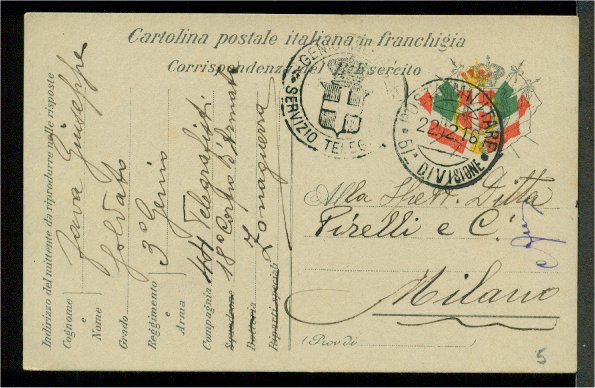 Cartolina postale italiana in franchigia
Corrispondenza del R. Esercito
SERVIZIO TELEG
POSTA MILITARE
22.12.16
61ª DIVISIONE
Alla Spett. Ditta
Pirelli e C.
Milano
(Prov di
5
Indirizzo del mittente da riprodurre nelle risposte
Cognome e Nome Fava Giuseppe
Grado Soldato
Reggimento e Arma 3° Genio
Compagnia Telegrafisti
Squadrone 18° Corpo d'Armata
Batteria Zona guerra
Riparti speciali